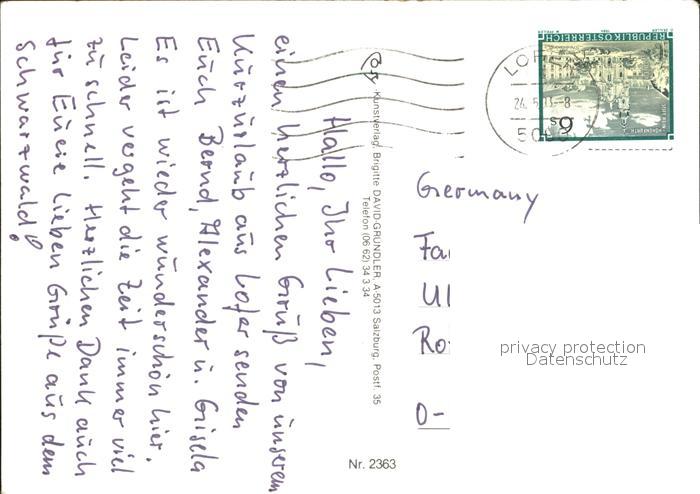 Hallo, Ihr Lieben,
einen herzlichen Gruß von unserem
Kurzurlaub aus Lofer senden
Euch Bernd, Alexander u. Gisela
Es ist wieder wunderschön hier.
Leider vergeht die Zeit immer viel
zu schnell. Herzlichen Dank auch
für Euere lieben Grüße aus dem
Schwarzwald!
Kunstverlag Brigitte DAVID-GRÜNDLER, A-5013 Salzburg, Postf. 35
Telefon (06 62) 34 3 34
Nr. 2363
REPUBLIK ÖSTERREICH
S 6
Germany
Fa
Ul
Ro
D-
privacy protection
Datenschutz